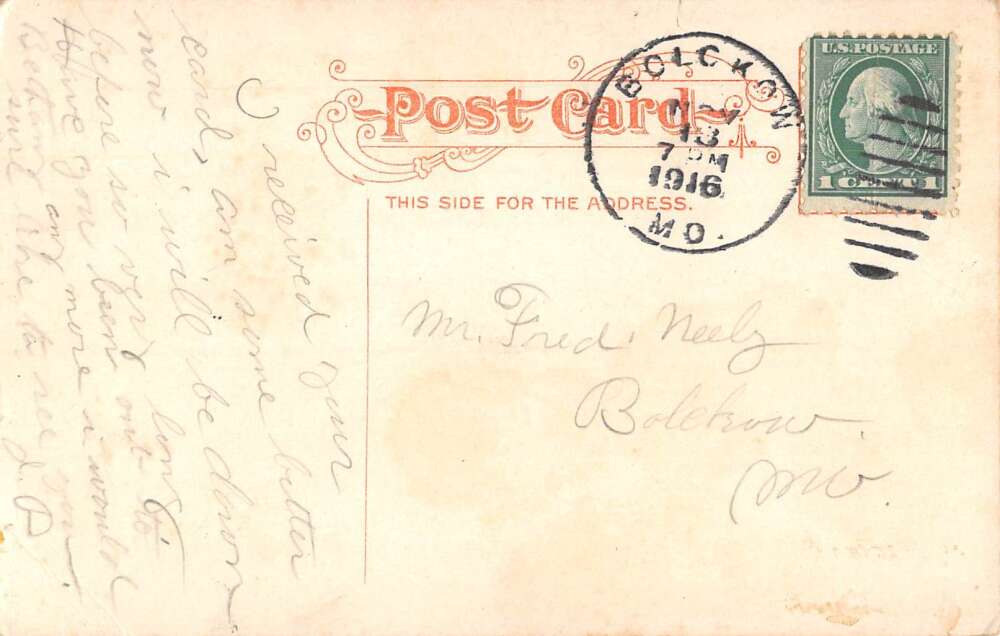 Post Card
THIS SIDE FOR THE ADDRESS.
BOLCKOW
NOV
13
7 PM
1916
MO.
U.S. POSTAGE
1 CENT 1
I received your
card, am some better
now i will be down
before so very long
Have you been out to
more i would
sure like to see you.
J. P
Mr. Fred. Neely
Bolckow.
Mo.